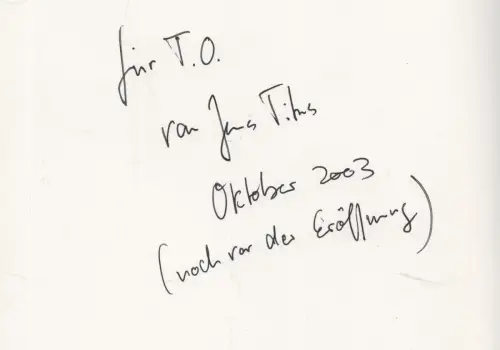 für T.O.
von Jens Titus
Oktober 2003
(noch vor der Eröffnung)